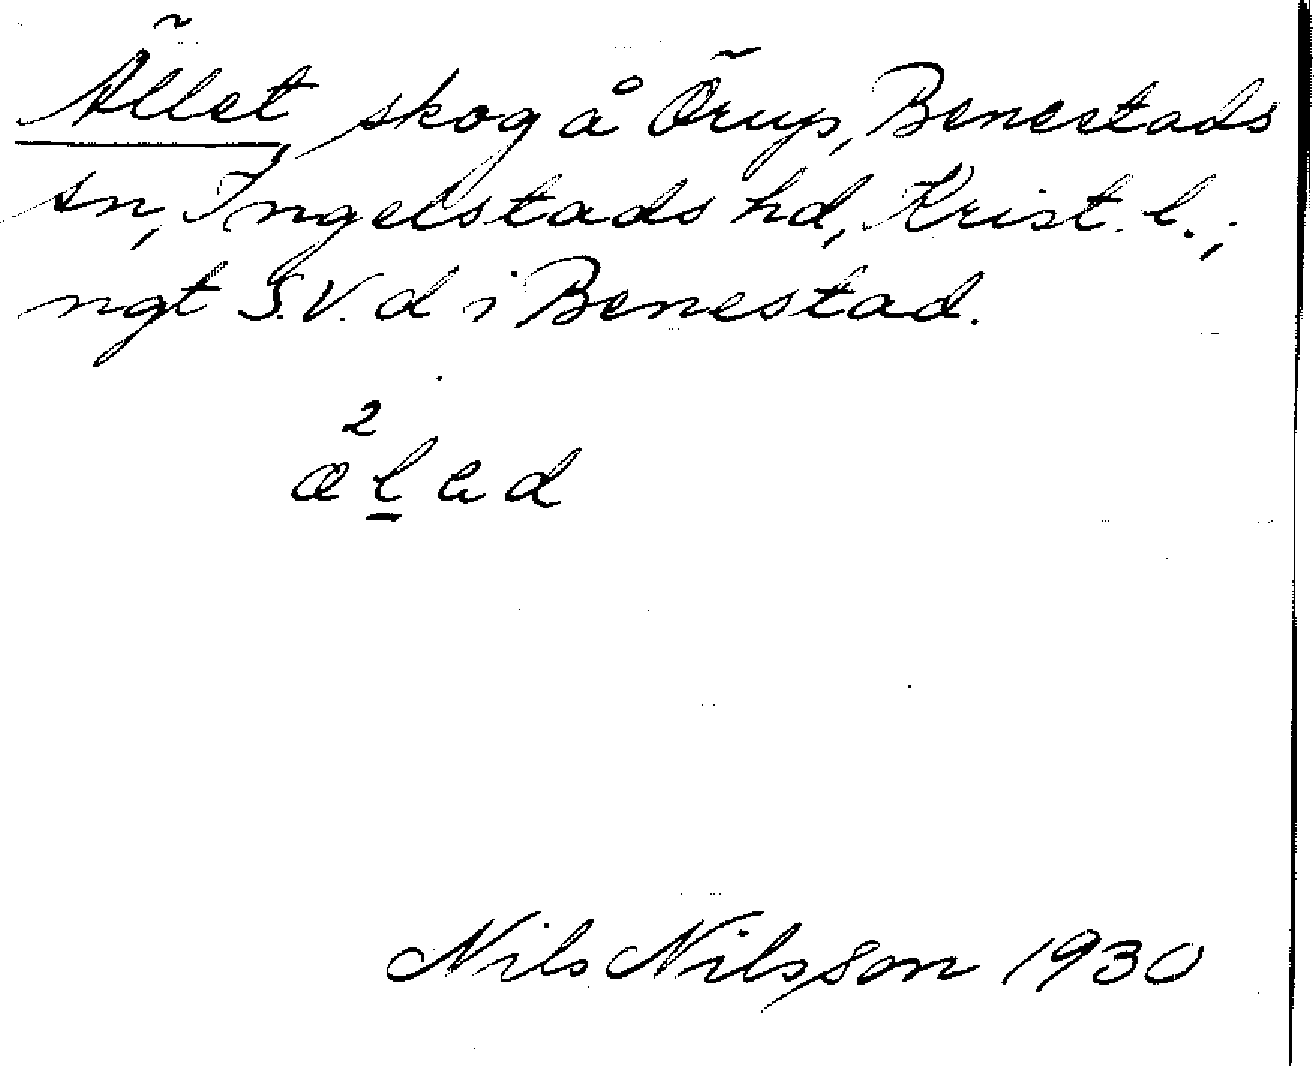 Ället, skog å Örup, Benestads
sn, Ingelstads hd, Krist. l.;
ngt S.V. d i Benestad.
Nils Nilsson 1930